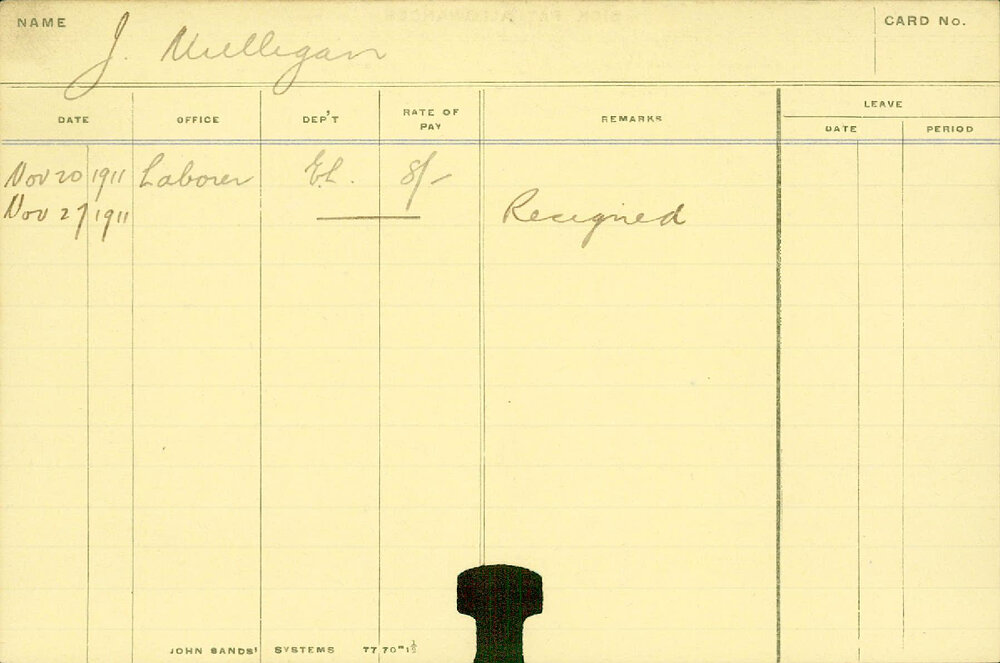 NAME J. Mulligan CARD No.
DATE OFFICE DEP'T RATE OF PAY REMARKS LEAVE
DATE PERIOD
Nov 20 1911 Laborer E.L. 8/-
Nov 27 1911 Resigned
JOHN SANDS' SYSTEMS 77 70"1½